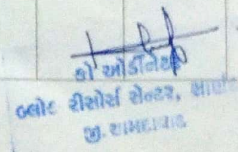 કો ઓર્ડીનેટર
બ્લોક રીસોર્સ સેન્ટર,
જી. અમદાવાદ